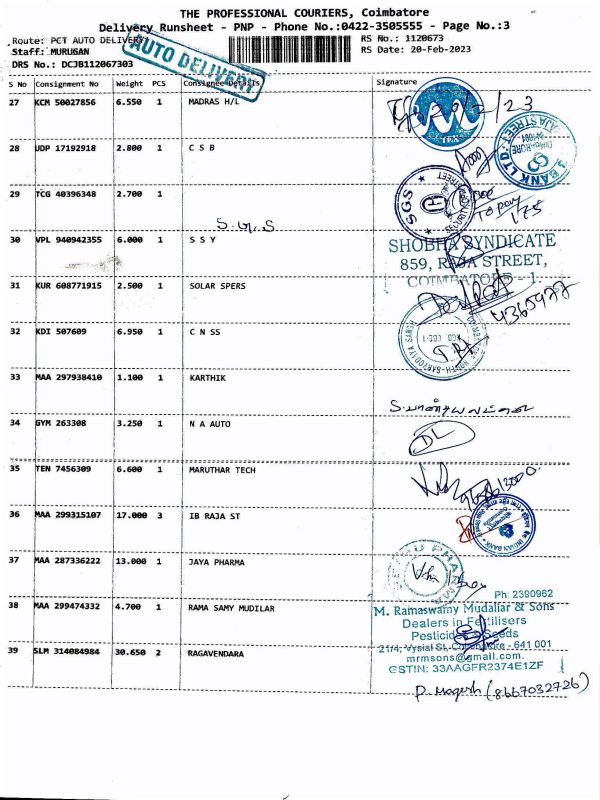 THE PROFESSIONAL COURIERS, Coimbatore
Delivery Runsheet - PNP - Phone No.:0422-3505555 - Page No.:3
Route: PCT AUTO DELIVERY
RS No.: 1120673
Staff: MURUGAN
RS Date: 20-Feb-2023
DRS No.: DCJB112067303
AUTO DELIVERY
S No Consignment No Weight PCS Consignee Details Signature
27 KCM 50027856 6.550 1 MADRAS H/L
20/2/23
28 UDP 17192918 2.800 1 C S B
BANK LTD
29 TCG 40396348 2.700 1
SGS
To pay
175
30 VPL 940942355 6.000 1 S S Y
SHOBHA SYNDICATE
859, RAJA STREET,
COIMBATORE - 1.
31 KUR 608771915 2.500 1 SOLAR SPERS
4365977
32 KDI 507609 6.950 1 C N SS
33 MAA 297938410 1.100 1 KARTHIK
34 GYM 263308 3.250 1 N A AUTO
DL
35 TEN 7456309 6.600 1 MARUTHAR TECH
36 MAA 299315107 17.000 3 IB RAJA ST
INDIAN BANK
37 MAA 287336222 13.000 1 JAYA PHARMA
38 MAA 299474332 4.700 1 RAMA SAMY MUDILAR
Ph: 2390962
M. Ramaswamy Mudaliar & Sons
Dealers in Fertilisers
Pesticides Seeds
21/4, Vysial St, Coimbatore - 641 001
mrmsons@gmail.com.
GSTIN: 33AAGFR2374E1ZF
39 SLM 314084984 30.650 2 RAGAVENDARA
P. Magesh (8667032726)